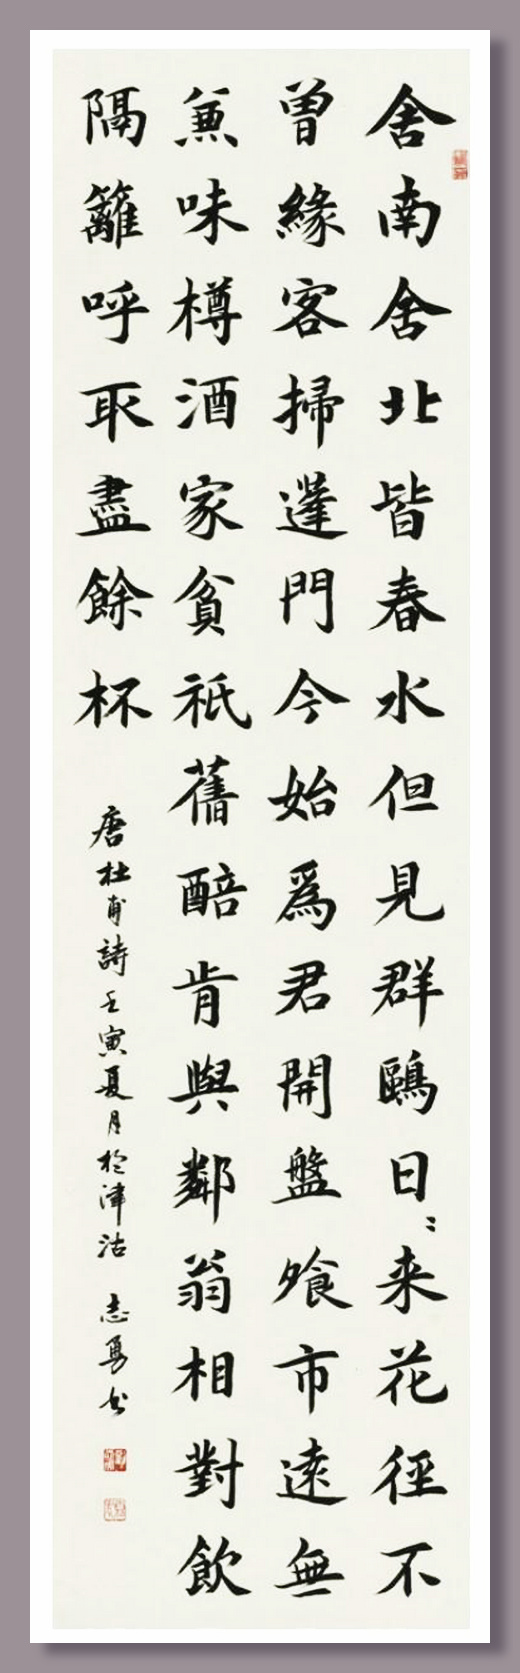 舍南舍北皆春水但見群鷗日〻来花徑不
曾緣客掃蓬門今始爲君開盤飧市遠無
兼味樽酒家貧祇舊醅肯與鄰翁相對飲
隔籬呼取盡餘杯
唐杜甫詩壬寅夏月於津沽 志勇书